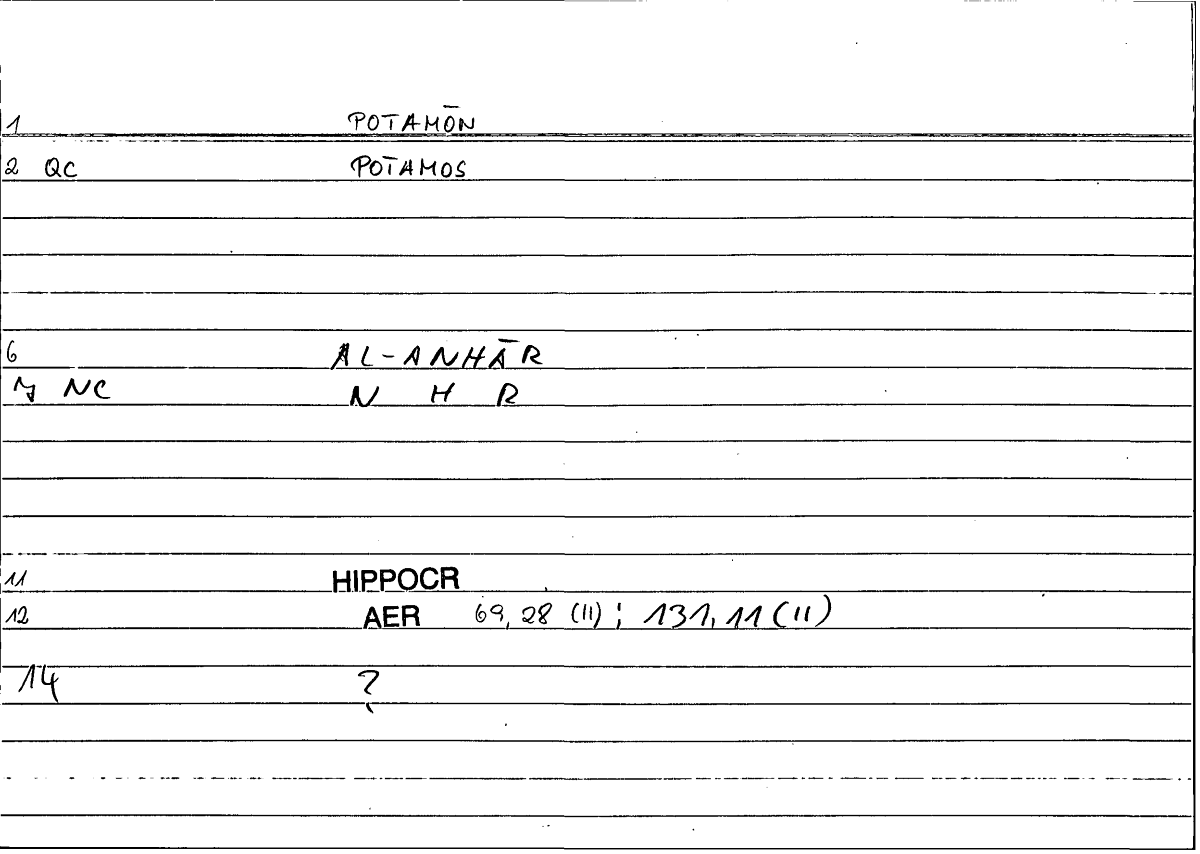 1 POTAMŌN
2 QC POTAMOS
6 AL-ANHĀR
7 NC N H R
11 HIPPOCR
12 AER 69, 28 (11) ; 131, 11 (11)
14 ?